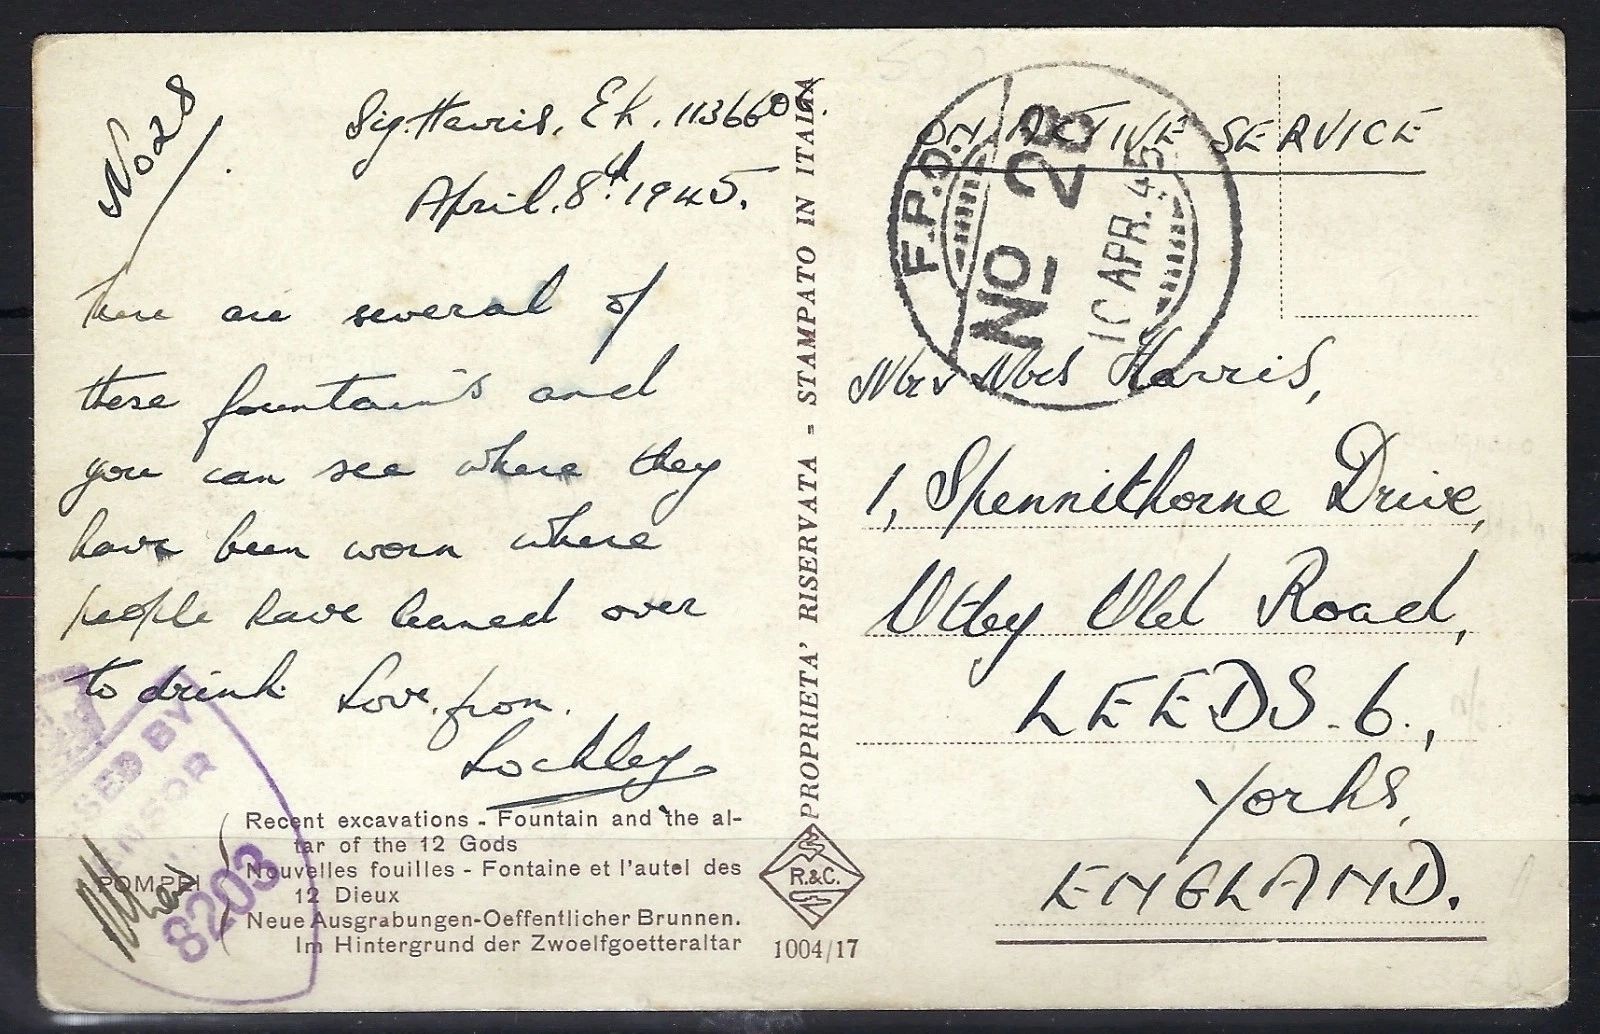 No 28
Sig. Harris, E k. 113660
April. 8th. 1945.
There are several of
these fountains and
you can see where they
have been worn where
people have leaned over
to drink. Love. from.
Lockley.
POMPEI
Recent excavations - Fountain and the al-
tar of the 12 Gods
Nouvelles fouilles - Fontaine et l'autel des
12 Dieux
Neue Ausgrabungen-Oeffentlicher Brunnen.
Im Hintergrund der Zwoelfgoetteraltar
SED BY
NSOR
8203
PROPRIETA' RISERVATA - STAMPATO IN ITALIA
R.&C.
1004/17
ON ACTIVE SERVICE
F.P.O.
No 28
10 APR. 45
Mr & Mrs Harris,
1, Spennithorne Drive,
Otley Old Road,
LEEDS. 6.,
Yorks,
ENGLAND.